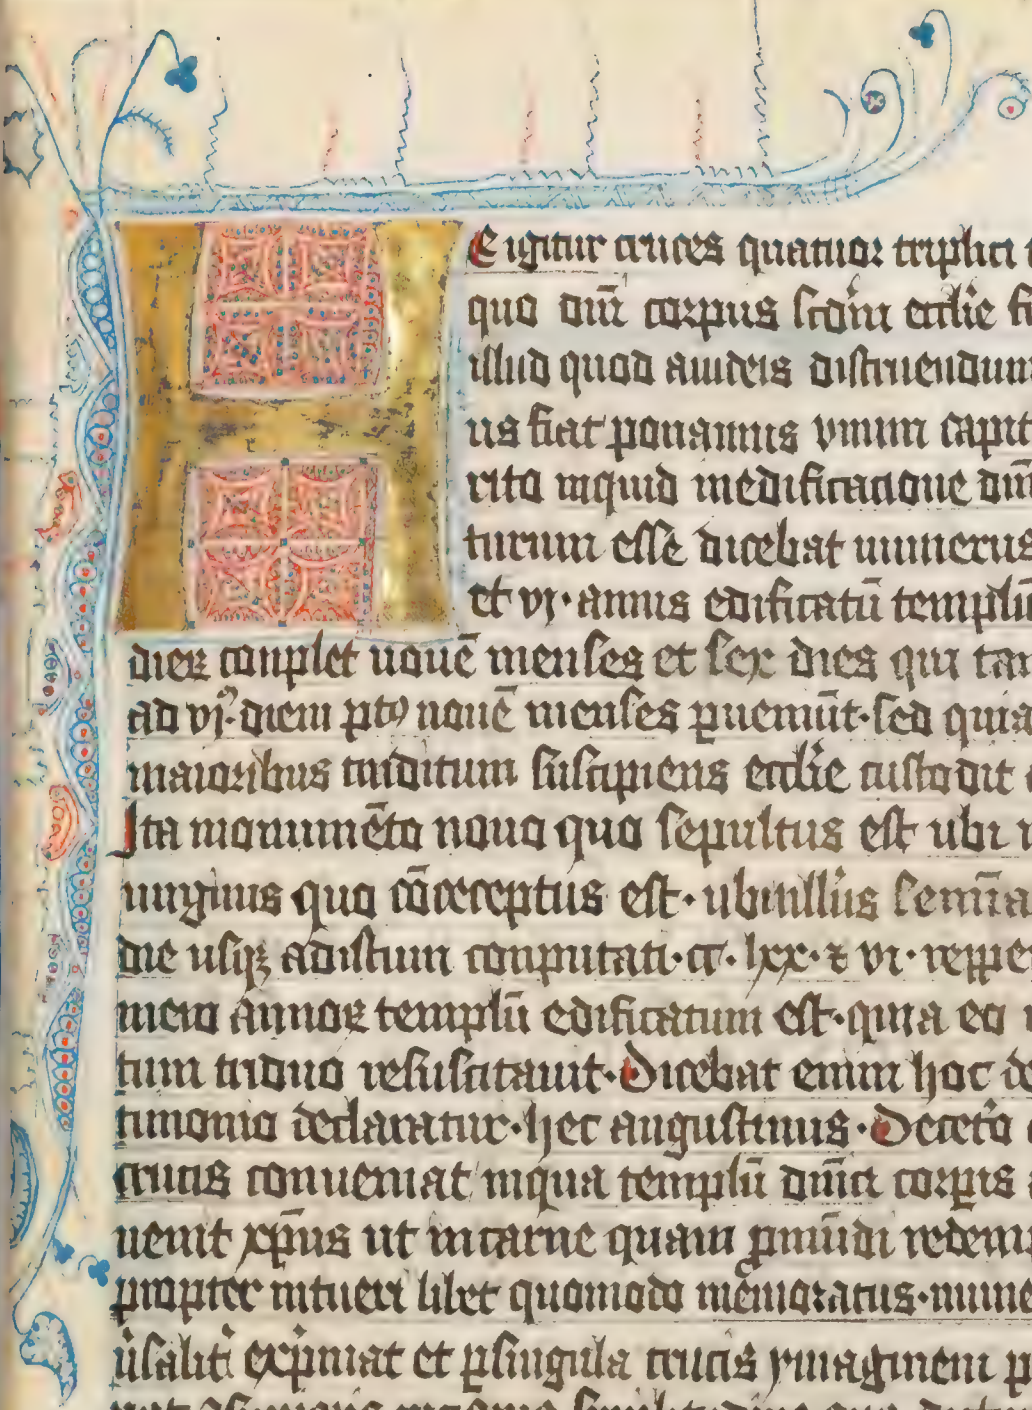 He igitur cruces quatuor triplici
quo dnī corpus scōm ecclie
illud quod a iudeis distruendum
us fiat ponamus vnum capit
rito inquid inedificatione dnī
turum esse dicebat numerus
et vj· annis edificatū templū
dieꝝ conplet nouē menses et sex dies qui tan
ad vj· diem ꝑto nouē menses ꝑuemūt· sed quia
maioribus traditum suscipiens ecclīe custodit
Ita monumēto nouo quo sepultus est ubi
uirginis quo cōceptus est· ubi nillius semīa
die usqꝫ adistum conputati· cc· lxx· ⁊ vi· reppe
mero annoꝝ templū edificatum est· quia eo
tum triduo resuscitauit· Dicebat enim hoc de
timonio declaratur· hec augustinus· Decetō
crucis conueniat inqua templū dnīci corpis
uenit xp̄us ut incarne quam pmūdi redem
propter intueri libet quomodo memoratus· nume
exp̄mat et ꝑsingula crucis ymaginem